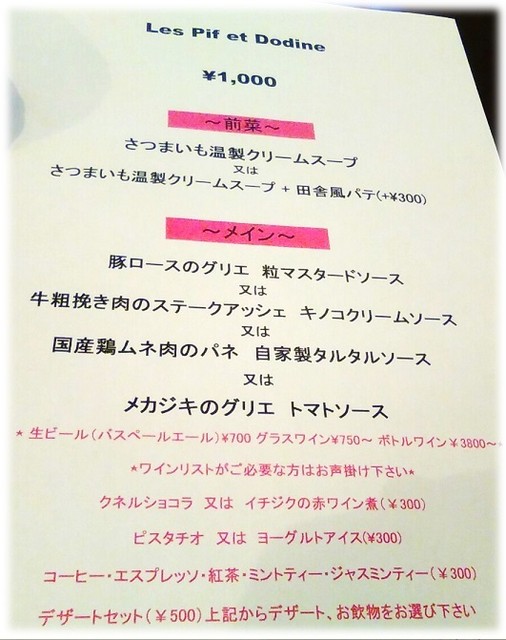 Les Pif et Dodine
¥1,000
～前菜～
さつまいも温製クリームスープ
又は
さつまいも温製クリームスープ + 田舎風パテ(+¥300)
～メイン～
豚ロースのグリエ 粒マスタードソース
又は
牛粗挽き肉のステークアッシェ キノコクリームソース
又は
国産鶏ムネ肉のパネ 自家製タルタルソース
又は
メカジキのグリエ トマトソース
* 生ビール(バスペールエール)¥700 グラスワイン¥750～ ボトルワイン￥3800～
*ワインリストがご必要な方はお声掛け下さい*
クネルショコラ 又は イチジクの赤ワイン煮(￥300)
ピスタチオ 又は ヨーグルトアイス(¥300)
コーヒー・エスプレッソ・紅茶・ミントティー・ジャスミンティー(￥300)
デザートセット(￥500)上記からデザート、お飲物をお選び下さい